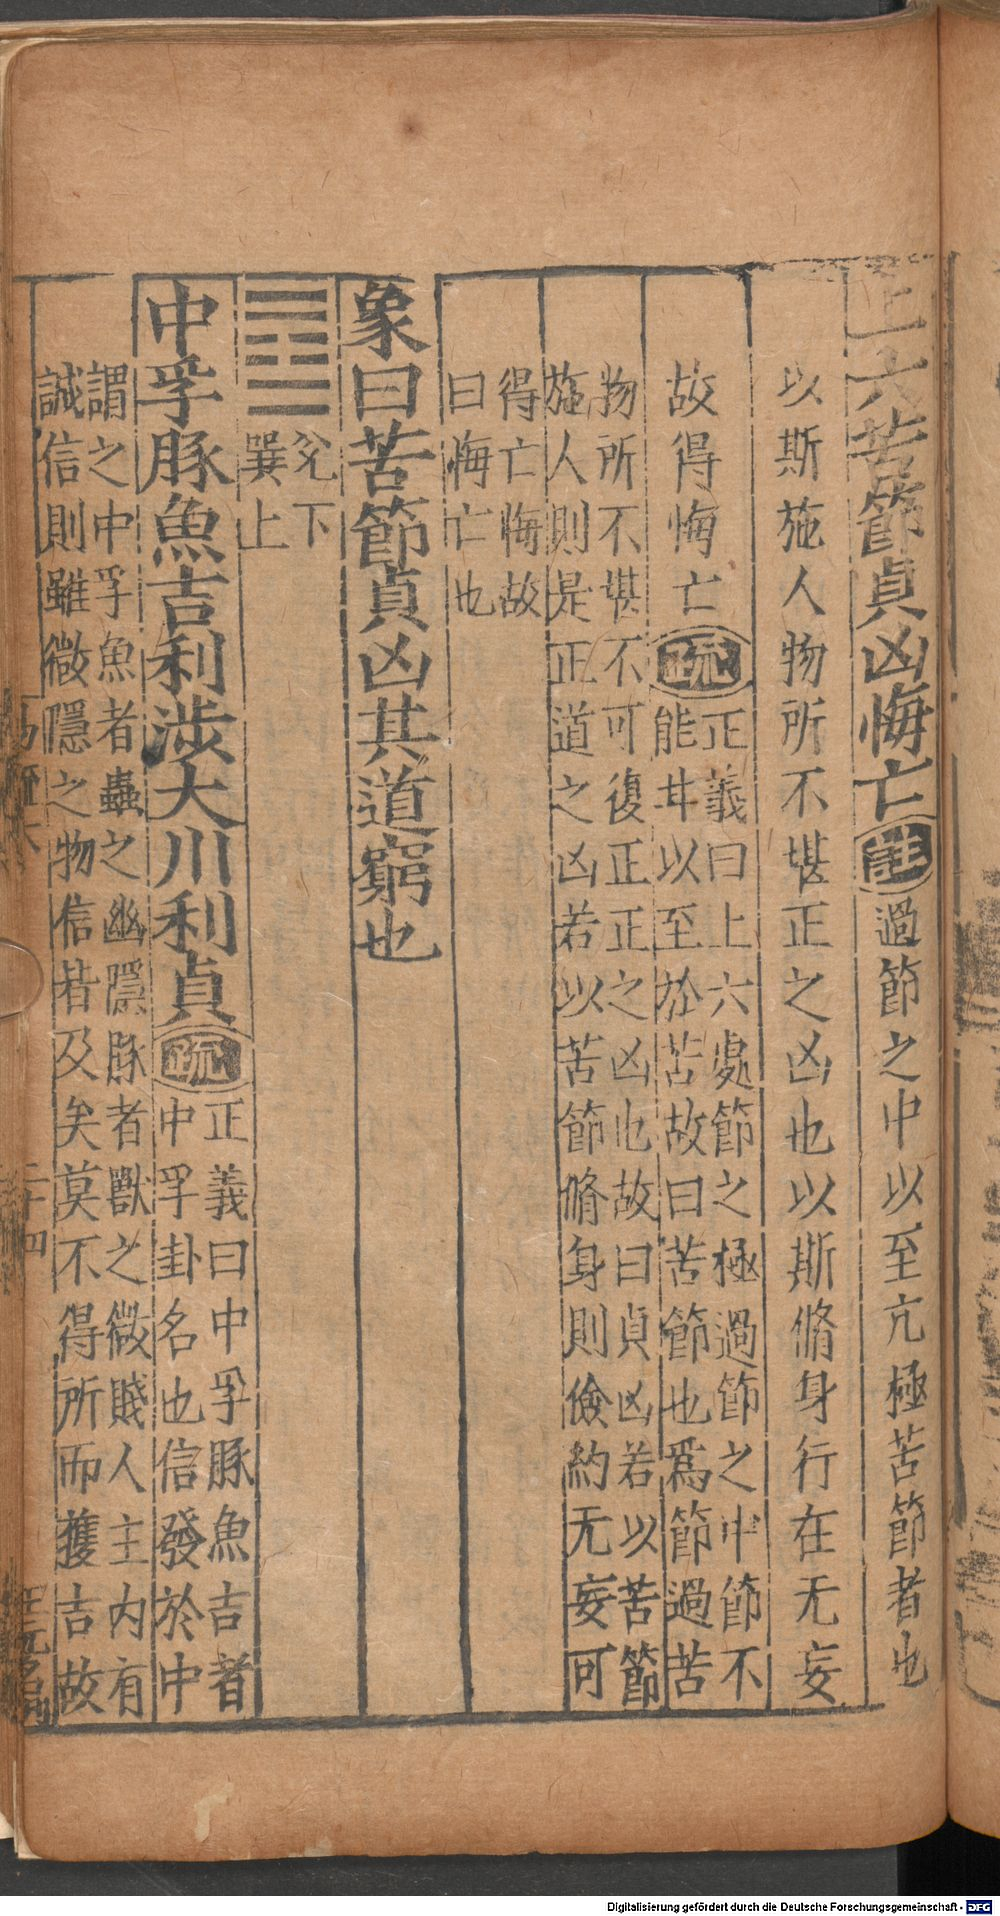 上六苦節貞凶悔亡註過節之中以至亢極苦節者也
以斯施人物所不堪正之凶也以斯脩身行在无妄
故得悔亡疏正義曰上六處節之極過節之中節不
能甘以至於苦故曰苦節也爲節過苦
物所不堪不可復正正之凶也故曰貞凶若以苦節
施人則是正道之凶若以苦節脩身則儉約无妄可
得亡悔故
曰悔亡也
象曰苦節貞凶其道窮也
兊下
巽上
中孚豚魚吉利涉大川利貞疏正義曰中孚豚魚吉者
中孚卦名也信發於中
謂之中孚魚者蟲之幽隱豚者獸之微賤人主內有
誠信則雖微隱之物信皆及矣莫不得所而獲吉故
易 六
二十四
Digitalisierung gefördert durch die Deutsche Forschungsgemeinschaft - DFG